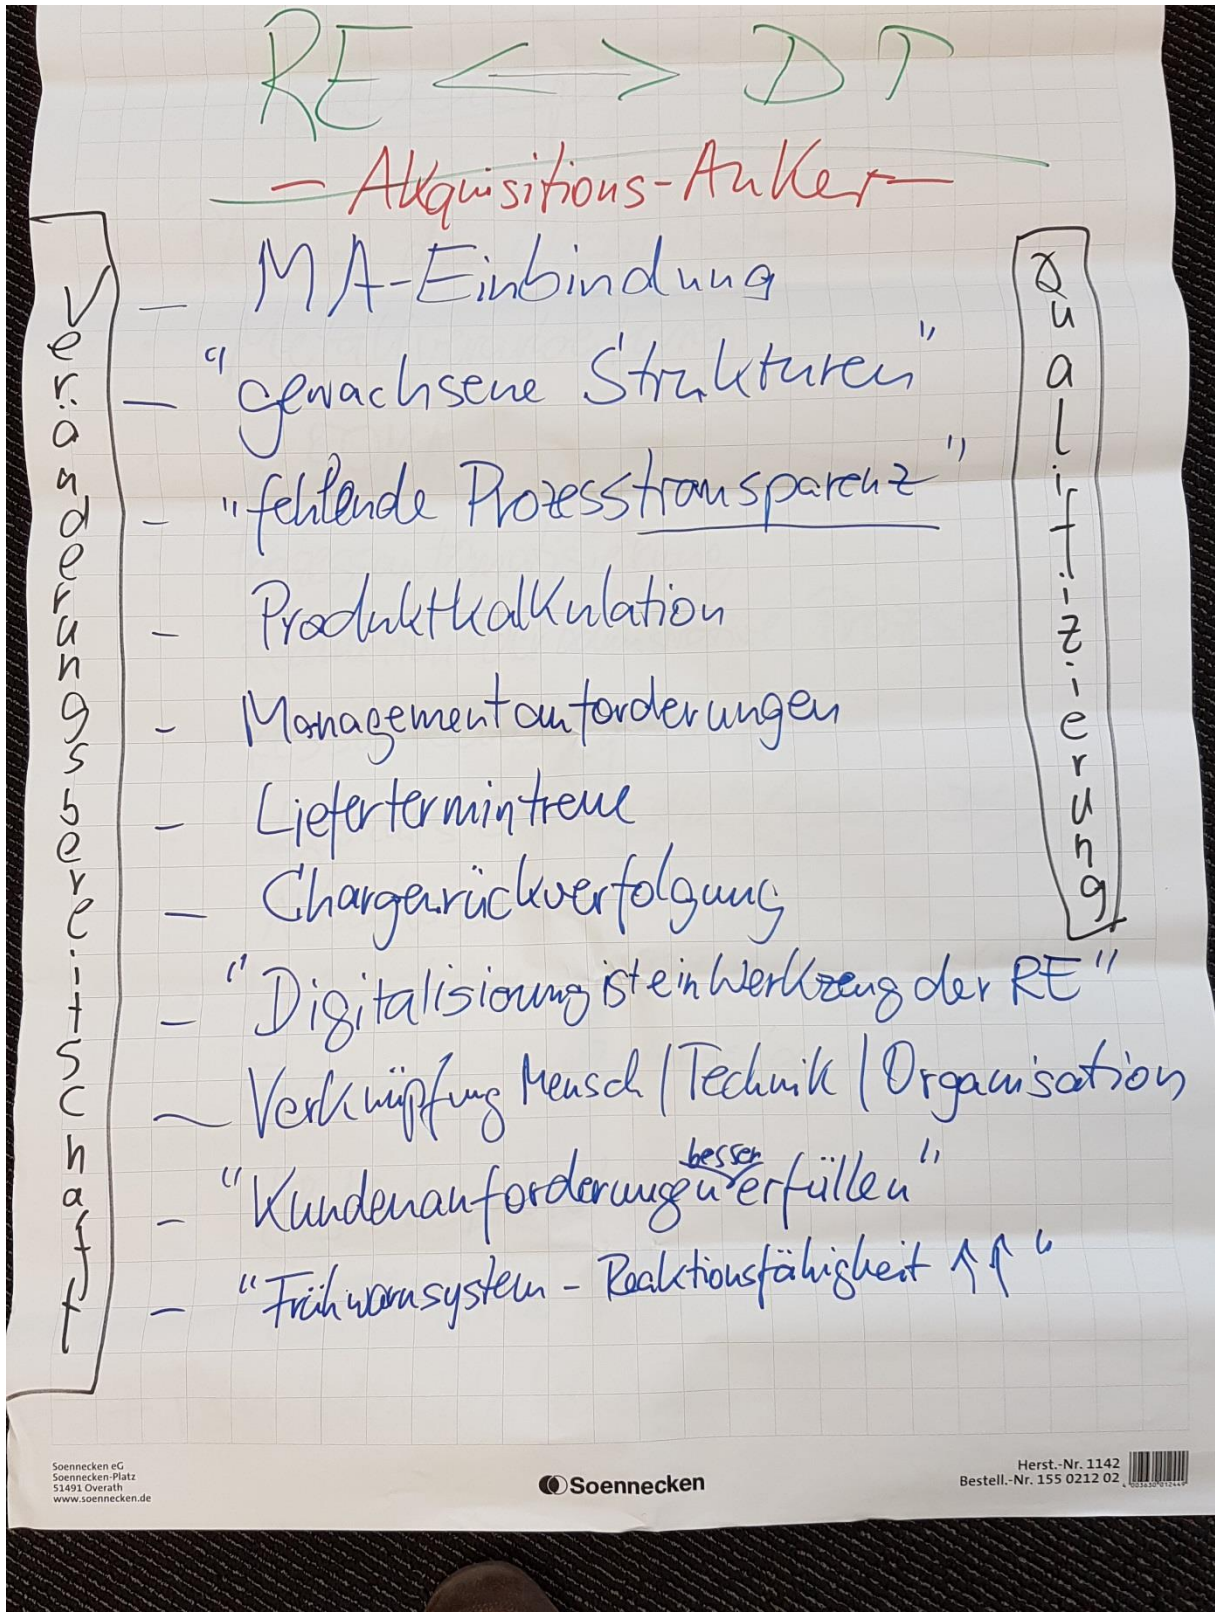 RE <-> DT
- Akquisitions-Anker -
Veränderungsbereitschaft
- MA-Einbindung
- "gewachsene Strukturen"
- "fehlende Prozesstransparenz"
- Produktkalkulation
- Managementanforderungen
- Liefertermintreue
- Chargenrückverfolgung
- "Digitalisierung ist ein Werkzeug der RE"
- Verknüpfung Mensch / Technik / Organisation
- "Kundenanforderungen besser erfüllen"
- "Frühwarnsystem - Reaktionsfähigkeit ↑↑"
Qualifizierung
Soennecken eG
Soennecken-Platz
51491 Overath
www.soennecken.de
Soennecken
Herst.-Nr. 1142
Bestell.-Nr. 155 0212 02